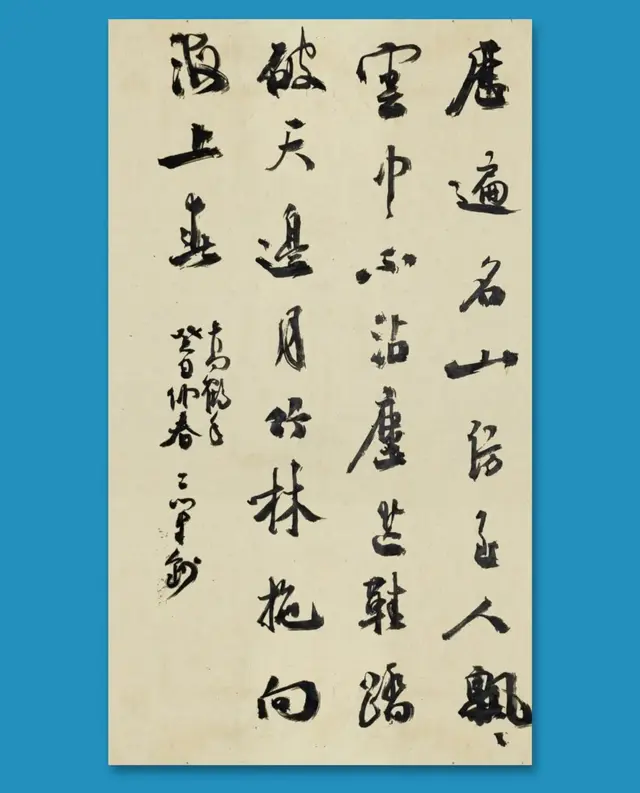 歷遍名山訪至人飄々
雲巾不沾塵芒鞋踏
破天邊月竹林拖向
海上春
高鶴年
仲春